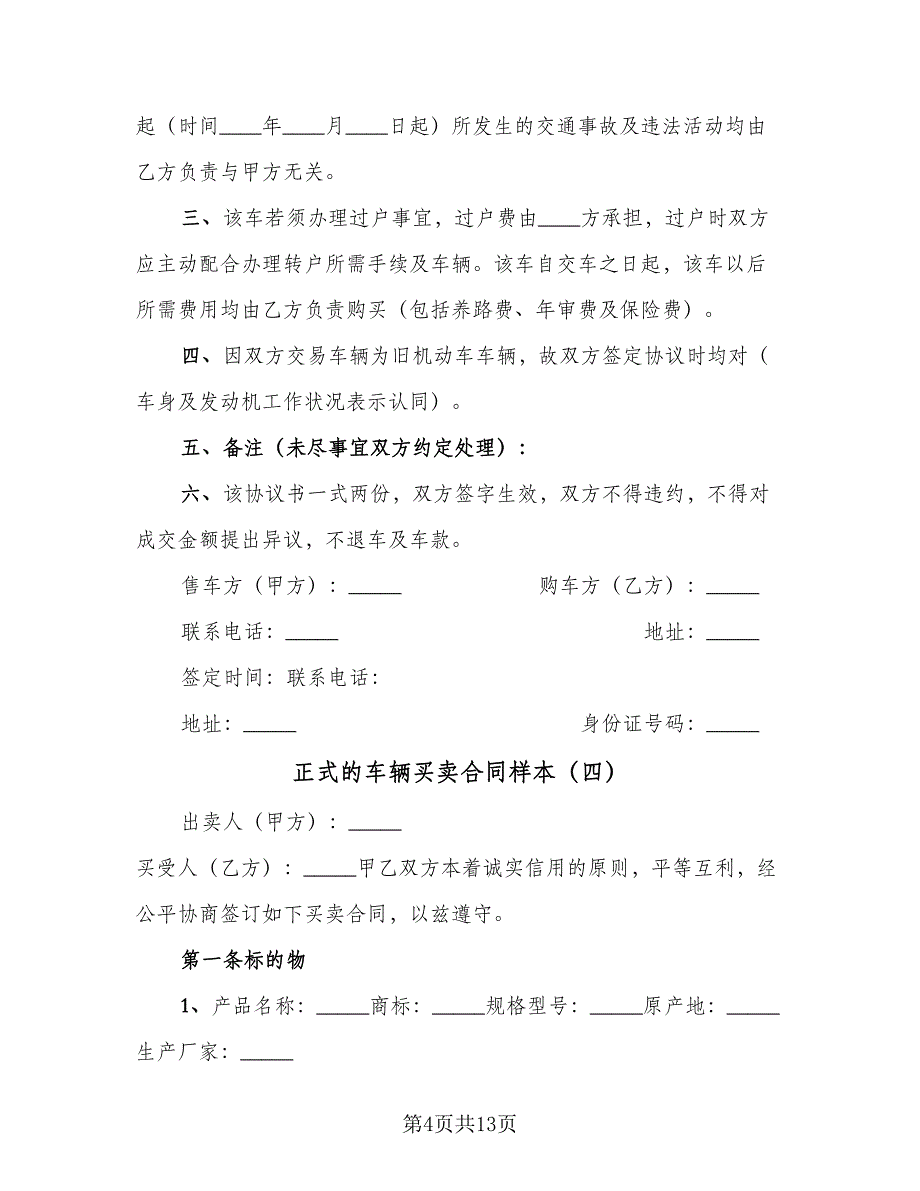 起（时间____年____月____日起）所发生的交通事故及违法活动均由
乙方负责与甲方无关。
三、该车若须办理过户事宜，过户费由____方承担，过户时双方
应主动配合办理转户所需手续及车辆。该车自交车之日起，该车以后
所需费用均由乙方负责购买（包括养路费、年审费及保险费）。
四、因双方交易车辆为旧机动车车辆，故双方签定协议时均对（
车身及发动机工作状况表示认同）。
五、备注（未尽事宜双方约定处理）：
六、该协议书一式两份，双方签字生效，双方不得违约，不得对
成交金额提出异议，不退车及车款。
售车方（甲方）：_____ 购车方（乙方）：_____
联系电话：_____ 地址：_____
签定时间：联系电话：
地址：_____ 身份证号码：_____
正式的车辆买卖合同样本（四）
出卖人（甲方）：_____
买受人（乙方）：_____甲乙双方本着诚实信用的原则，平等互利，经
公平协商签订如下买卖合同，以兹遵守。
第一条标的物
1、产品名称：_____商标：_____规格型号：_____原产地：_____
生产厂家：_____
第4页共13页